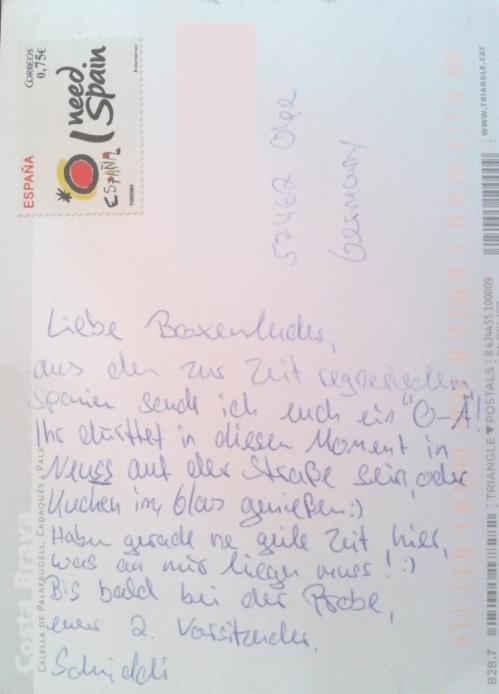 ESPAÑA
CORREOS
0,75€
I need
Spain
ESPAÑA
TURISMO
57462 Olpe
Germany
Liebe Boxenluder,
aus den zur Zeit regnerischem
Spanien sende ich euch ein "O-A"!
Ihr dürftet in diesen Moment in
Neuss auf der Straße sein, oder
Kuchen im Glas genießen:)
Haben gerade ne geile Zeit hier,
was an mir liegen muss! :)
Bis bald bei der Probe,
euer 2. Vorsitzender,
Schiddi
Costa Brava
CALELLA DE PALAFRUGELL, CADAQUÉS I PALS
WWW.TRIANGLE.CAT
TRIANGLE ▼ POSTALS
8424455 100009
828.7